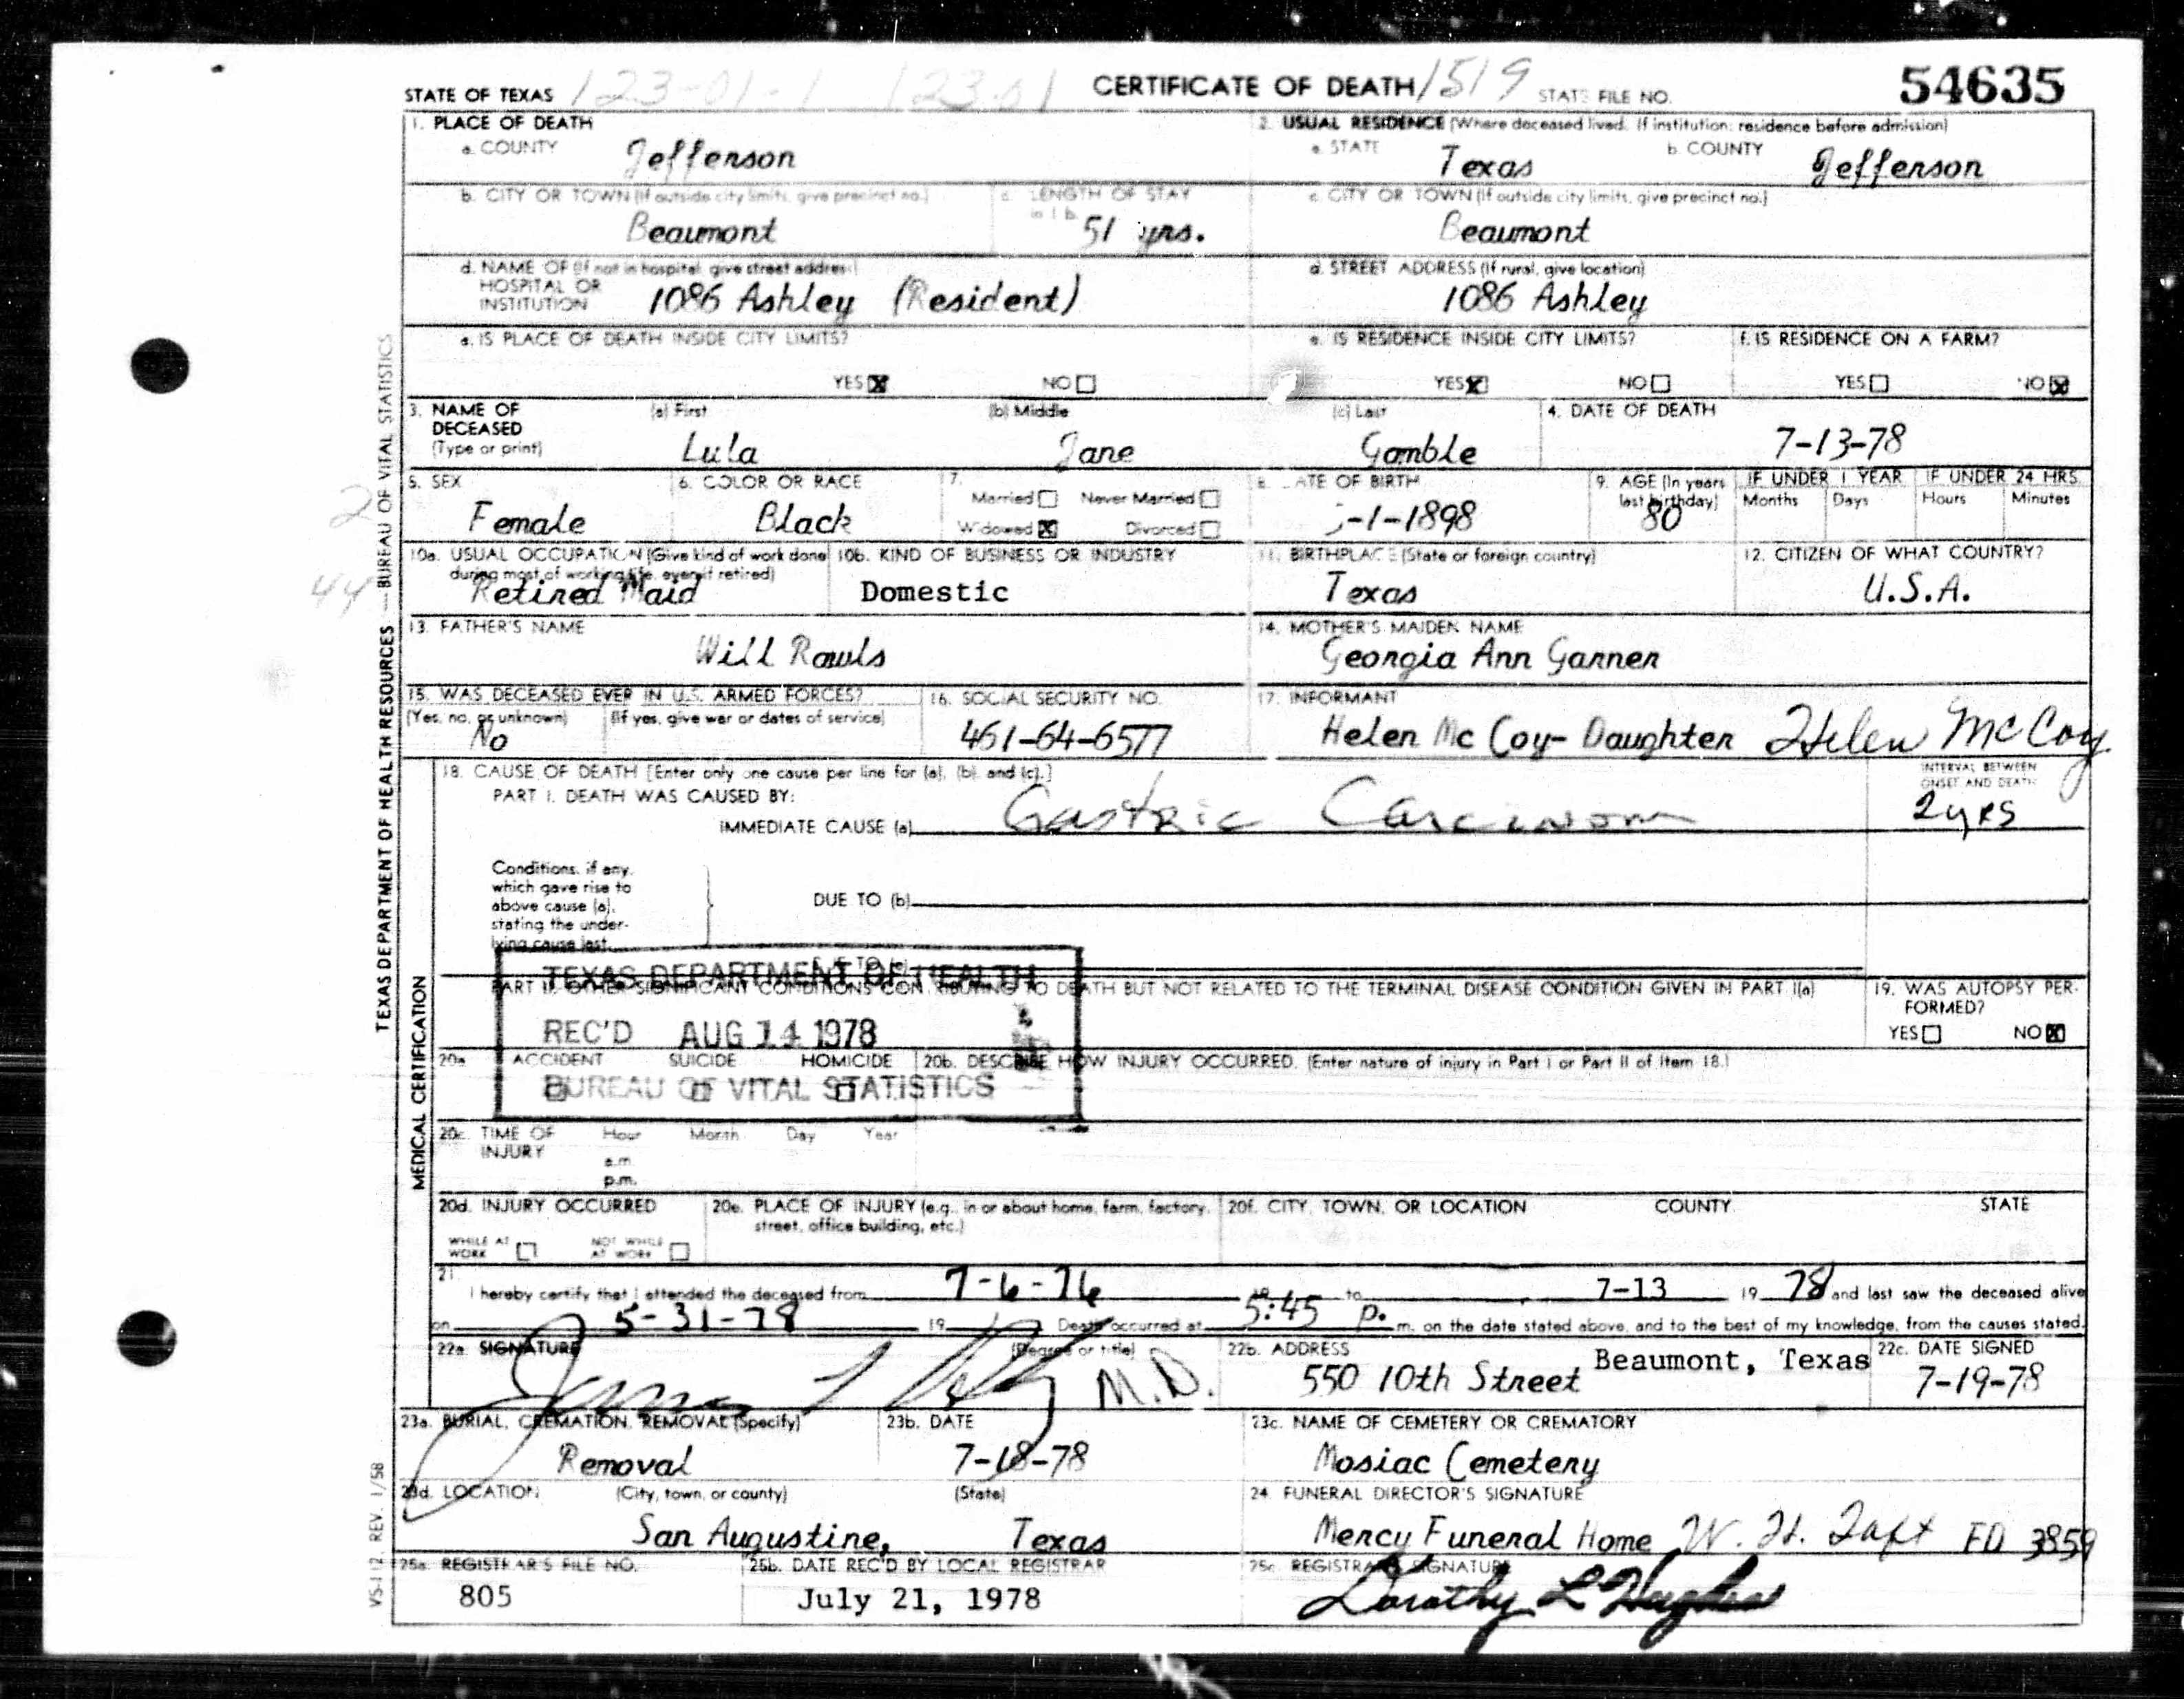 STATE OF TEXAS 123-01-1 123.01 CERTIFICATE OF DEATH 1519 STATE FILE NO. 54635
1. PLACE OF DEATH
a. COUNTY Jefferson
2. USUAL RESIDENCE (Where deceased lived. If institution: residence before admission)
a. STATE Texas b. COUNTY Jefferson
b. CITY OR TOWN (If outside city limits, give precinct no.) Beaumont
c. LENGTH OF STAY in 1 b. 51 yrs.
c. CITY OR TOWN (If outside city limits, give precinct no.) Beaumont
d. NAME OF (If not in hospital, give street address) HOSPITAL OR INSTITUTION 1086 Ashley (Resident)
d. STREET ADDRESS (If rural, give location) 1086 Ashley
e. IS PLACE OF DEATH INSIDE CITY LIMITS? YES ☒ NO ☐
e. IS RESIDENCE INSIDE CITY LIMITS? YES ☒ NO ☐
f. IS RESIDENCE ON A FARM? YES ☐ NO ☒
3. NAME OF DECEASED (Type or print) (a) First Lula (b) Middle Jane (c) Last Gamble
4. DATE OF DEATH 7-13-78
5. SEX Female
6. COLOR OR RACE Black
7. Married ☐ Never Married ☐ Widowed ☒ Divorced ☐
8. DATE OF BIRTH -1-1898
9. AGE (In years last birthday) 80
IF UNDER 1 YEAR Months Days
IF UNDER 24 HRS. Hours Minutes
10a. USUAL OCCUPATION (Give kind of work done during most of working life, even if retired) Retired Maid
10b. KIND OF BUSINESS OR INDUSTRY Domestic
11. BIRTHPLACE (State or foreign country) Texas
12. CITIZEN OF WHAT COUNTRY? U.S.A.
13. FATHER'S NAME Will Rawls
14. MOTHER'S MAIDEN NAME Georgia Ann Garner
15. WAS DECEASED EVER IN U.S. ARMED FORCES? (Yes, no, or unknown) (If yes, give war or dates of service) No
16. SOCIAL SECURITY NO. 461-64-6577
17. INFORMANT Helen Mc Coy- Daughter Helen McCoy
18. CAUSE OF DEATH [Enter only one cause per line for (a), (b), and (c).]
PART I. DEATH WAS CAUSED BY:
IMMEDIATE CAUSE (a) Gastric Carcinoma
INTERVAL BETWEEN ONSET AND DEATH 2 yrs
Conditions, if any, which gave rise to above cause (a), stating the underlying cause last.
DUE TO (b)
PART II. OTHER SIGNIFICANT CONDITIONS CONTRIBUTING TO DEATH BUT NOT RELATED TO THE TERMINAL DISEASE CONDITION GIVEN IN PART I(a)
19. WAS AUTOPSY PERFORMED? YES ☐ NO ☒
TEXAS DEPARTMENT OF HEALTH
REC'D AUG 14 1978
BUREAU OF VITAL STATISTICS
20a. ACCIDENT SUICIDE HOMICIDE
20b. DESCRIBE HOW INJURY OCCURRED. (Enter nature of injury in Part I or Part II of Item 18.)
20c. TIME OF INJURY Hour Month Day Year
a.m.
p.m.
20d. INJURY OCCURRED
WHILE AT WORK ☐ NOT WHILE AT WORK ☐
20e. PLACE OF INJURY (e.g., in or about home, farm, factory, street, office building, etc.)
20f. CITY, TOWN, OR LOCATION COUNTY STATE
21. I hereby certify that I attended the deceased from 7-6-76 19 to 7-13 19 78 and last saw the deceased alive
on 5-31-78 19 Death occurred at 5:45 p. m. on the date stated above, and to the best of my knowledge, from the causes stated.
22a. SIGNATURE (Degree or title) M.D.
22b. ADDRESS 550 10th Street Beaumont, Texas
22c. DATE SIGNED 7-19-78
23a. BURIAL, CREMATION, REMOVAL (Specify) Removal
23b. DATE 7-18-78
23c. NAME OF CEMETERY OR CREMATORY Mosiac Cemetery
23d. LOCATION (City, town, or county) (State) San Augustine, Texas
24. FUNERAL DIRECTOR'S SIGNATURE Mercy Funeral Home W. H. Taft FD 3859
25a. REGISTRAR'S FILE NO. 805
25b. DATE REC'D BY LOCAL REGISTRAR July 21, 1978
25c. REGISTRAR'S SIGNATURE Dorothy L Hughes
TEXAS DEPARTMENT OF HEALTH RESOURCES — BUREAU OF VITAL STATISTICS
MEDICAL CERTIFICATION
VS-112, REV. 1/58
2
44